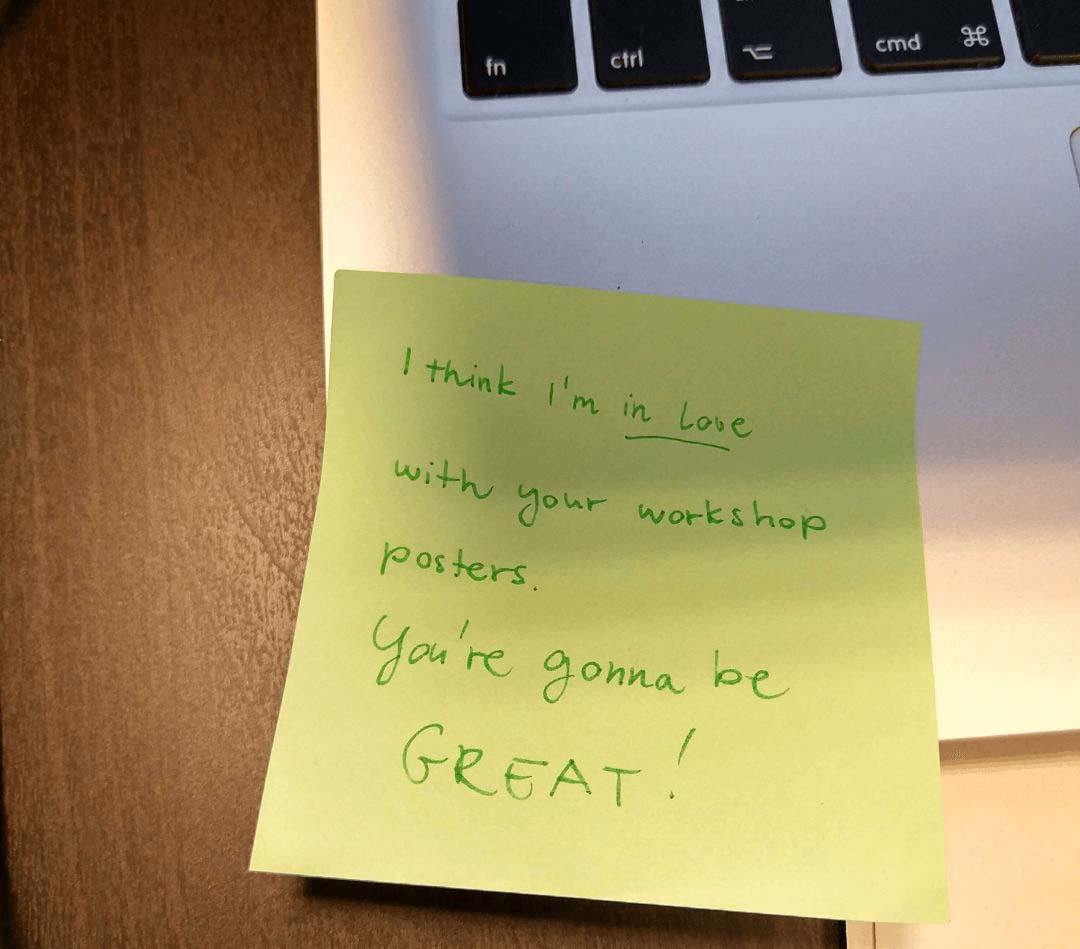 fn ctrl ⌥ cmd ⌘
I think I'm in love
with your workshop
posters.
You're gonna be
GREAT!